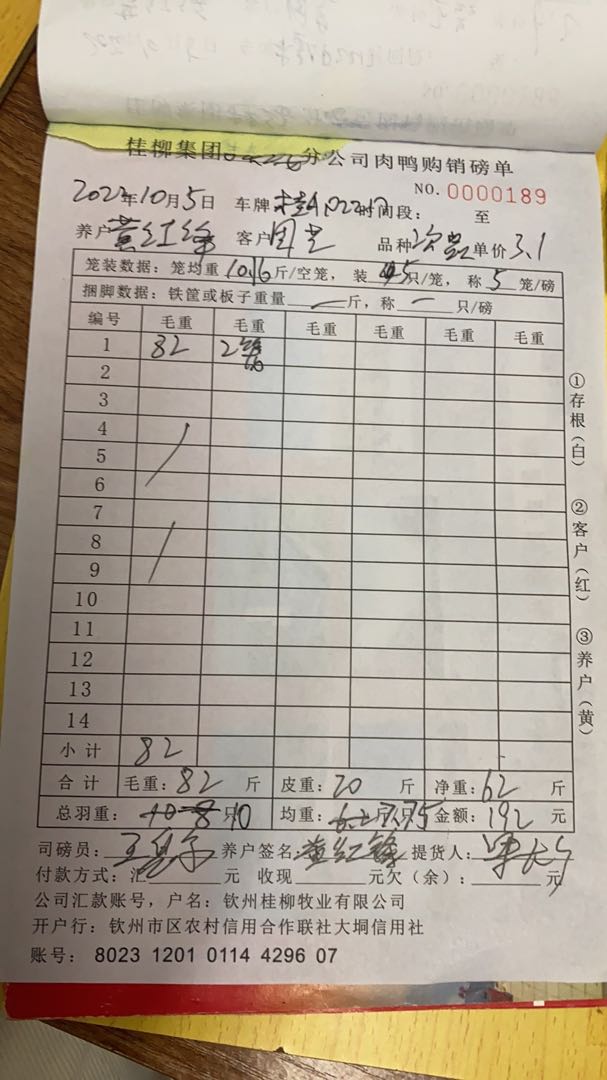 桂柳集团 分公司肉鸭购销磅单
NO. 0000189
2022年10月5日 车牌 时间段： 至
养户 黄红锋 客户 周艺 品种 次品 单价 3.1
笼装数据：笼均重 斤/空笼，装 只/笼，称 5 笼/磅
捆脚数据：铁筐或板子重量 — 斤，称 — 只/磅
编号 毛重 毛重 毛重 毛重 毛重 毛重
1 82 2笼
2
3
4
5
6
7
8
9
10
11
12
13
14
小计 82
合计 毛重：82 斤 皮重：20 斤 净重：62 斤
总羽重： 只 10 均重： 斤/只 金额：192 元
司磅员： 养户签名 黄红锋 提货人：
付款方式：汇 元 收现 元欠（余）： 元
公司汇款账号，户名：钦州桂柳牧业有限公司
开户行：钦州市区农村信用合作联社大垌信用社
账号： 8023 1201 0114 4296 07
①存根（白）
②客户（红）
③养户（黄）